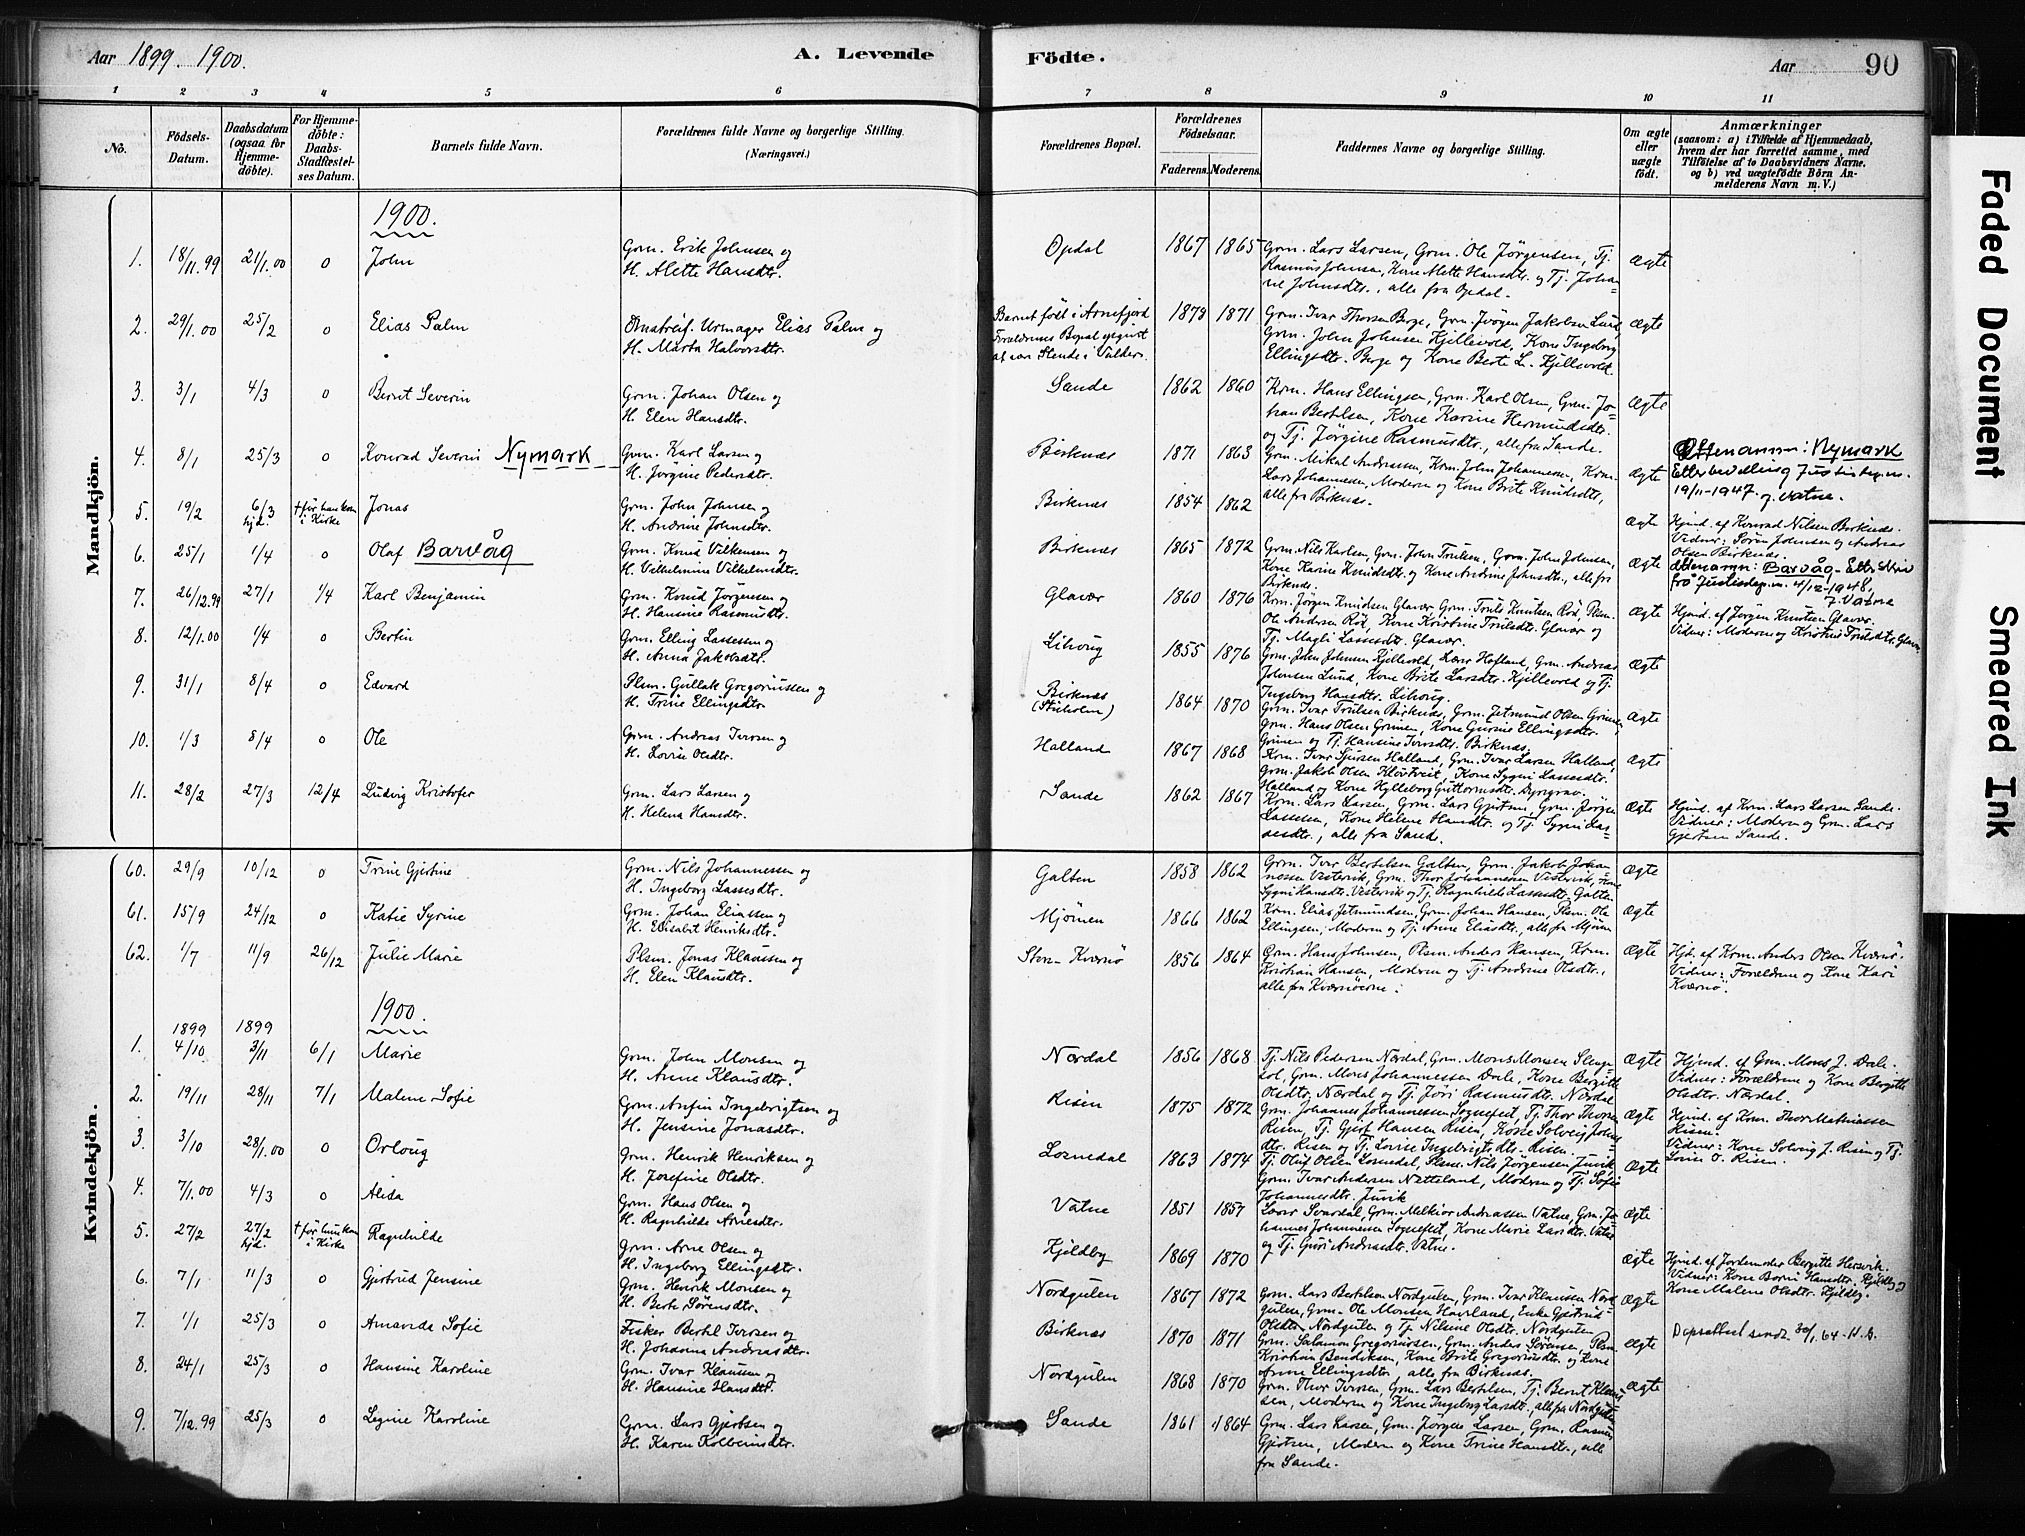 Aar 1899. 1900.
A. Levende
Födte.
Aar
90
1 2 3 4 5 6 7 8 9 10 11
No.
Födsels-
Datum.
Daabsdatum
(ogsaa for
Hjemme-
döbte).
For Hjemme-
döbte:
Daabs-
Stadfæstel-
ses Datum.
Barnets fulde Navn.
Forældrenes fulde Navne og borgerlige Stilling.
(Næringsvei.)
Forældrenes Bopæl.
Forældrenes
Födselsaar.
Faderens. Moderens.
Faddernes Navne og borgerlige Stilling.
Om ægte
eller
uægte
født.
Anmærkninger
(saasom: a) i Tilfælde af Hjemmedaab,
hvem der har forrettet samme, med
Tilföielse af to Daabsvidners Navne,
og b) ved uægtefödte Börn An-
melderens Navn m. V.)
Mandkjön.
1900.
1. 18/11.99 21/1.00 o John
Grm. Erik Johnsen og
H. Alette Hansdtr.
Opdal 1867 1865
Grm. Lars Larsen, Grm. Ole Jørgensen, Tj.
Rasmus Johnsen, Kone Alette Hansdtr. og Tj. Johan-
ne Johnsdtr., alle fra Opdal.
Ægte
2. 29/1.00 25/2 o Elias Palm
Omstreif. Urmager Elias Palm og
H. Marta Halvorsdtr.
Barnet født i Arnefjord
Forældrenes Bopæl opgivet
at være Slende i Valders.
1873 1871
Grm. Ivar Thorsen Berge, Grm. Jørgen Jakobsen Lund,
Grm. John Johnsen Kjellevold, Kone Ingeborg
Ellingsdtr. Berge og Kone Berte L. Kjellevold.
Ægte
3. 3/1 4/3 o Bernt Severin
Grm. Johan Olsen og
H. Elen Hansdtr.
Sande 1862 1860
Krm. Hans Ellingsen, Grm. Karl Olsen, Grm. Jo-
han Bertilsen, Kone Karine Hermundsdtr.
og Tj. Jørgine Rasmusdtr., alle fra Sande.
Ægte
4. 8/1 25/3 o Konrad Severin Nymark
Grm. Karl Larsen og
H. Jørgine Pedersdtr.
Birknæs 1871 1863
Grm. Mikal Andreassen, Krm. John Johannesen, Krm.
Lars Johannesen, Moderen og Kone Brite Knudsdtr.,
alle fra Birknæs.
Ægte
Ættenamn: Nymark
Etter bevilling Justisdep.m.
19/11-1947. og Vatne.
5. 19/2 6/3 hjd. † før han kom i Kirke Jonas
Grm. John Johnsen og
H. Andrine Johnsdtr.
Birknæs 1854 1862
Ægte
Hjmd. af Konrad Nilsen Birknæs.
Vidner: Søren Johnsen og Andreas
Olsen Birknæs.
6. 25/1 1/4 o Olaf Barvåg
Grm. Knud Vilkensen og
H. Vilhelmine Vilhelmsdtr.
Birknæs 1865 1872
Grm. Nils Karlsen, Grm. John Trulsen, Grm. John Johnsen,
Kone Karine Knudsdtr. og Kone Andrine Johnsdtr., alle fra
Birknæs.
Ægte
Ættenamn: Barvåg - Etter skriv
frå Justisdep.m. 4/12-1948,
7. 26/12.99 27/1 1/4 Karl Benjamin
Grm. Knud Jørgensen og
H. Hansine Rasmusdtr.
Glavær 1860 1876
Krm. Jørgen Knudsen Glavær, Grm. Truls Knutsen Röd, Plsm.
Ole Andersen Röd, Kone Kristine Trulsdtr. Glavær og
Tj. Magli Lassesdtr. Glavær.
Ægte
Hjmd. af Jørgen Knutsen Glavær.
Vidner: Moderen og Kristine Trulsdtr. Glavær
8. 12/1.00 1/4 o Bertin
Grm. Elling Lassessen og
H. Anna Jakobsdtr.
Lihoug 1855 1876
Grm. John Johnsen Kjellevold, Lærer Hofland, Grm. Andreas
Johnsen Lund, Kone Brite Larsdtr. Kjellevold og Tj.
Ingeborg Hansdtr. Lihoug.
Ægte
9. 31/1 8/4 o Edvard
Plsm. Gullak Gregoriussen og
H. Trine Ellingsdtr.
Birknæs
1864 1870
Grm. Ivar Trulsen Birknæs, Grm. Jetmund Olsen Grinen,
Grm. Hans Olsen Grinen, Kone Gurine Ellingsdtr.
Grinen og Tj. Hansine Iversdtr. Birknæs.
Ægte
10. 1/3 8/4 o Ole
Grm. Andreas Iversen og
H. Lovise Olsdtr.
Halland 1867 1868
Krm. Ivar Sjursen Halland, Grm. Ivar Larsen Halland,
Grm. Jakob Olsen Kløvtveit, Kone Sygni Lassesdtr.
Halland og Kone Hylleborg Guttormsdtr. Dyngrav.
Ægte
11. 28/2 27/3 12/4 Ludvig Kristofer
Grm. Lars Larsen og
H. Helena Hansdtr.
Sande 1862 1867
Krm. Lars Larsen, Grm. Lars Gjertsen, Grm. Jørgen
Lassesen, Kone Helene Hansdtr. og Tj. Sygni Las-
sesdtr., alle fra Sand.
Ægte
Hjmd. af Krm. Lars Larsen Sande.
Vidner: Moderen og Grm. Lars
Gjertsen Sande.
Kvindekjön.
60. 29/9 10/12 o Trine Gjertine
Grm. Nils Johannessen og
H. Ingeborg Lassesdtr.
Galten 1858 1862
Grm. Ivar Bertelsen Galten, Grm. Jakob Johan-
nessen Vestervik, Grm. Thor Johannesen Vestervik, Kone
Sygni Hansdtr. Vestervik og Tj. Ragnhilde Lassesdtr. Galten
Ægte
61. 15/9 24/12 o Katie Syrine
Grm. Johan Eliassen og
H. Elisabet Henriksdtr.
Mjömen 1866 1862
Krm. Elias Jetmundsen, Grm. Johan Hansen, Plsm. Ole
Ellingsen, Moderen og Tj. Anne Eliasdtr., alle fra Mjömen
Ægte
62. 1/7 11/9 26/12 Julie Marie
Plsm. Jonas Klaussen og
H. Elen Klausdtr.
Sten-Kværnö 1856 1864
Grm. Hans Johnsen, Plsm. Anders Hansen, Krm.
Kristian Hansen, Moderen og Tj. Andrine Olsdtr.,
alle fra Kværnöerne.
Ægte
Hjd. af Krm. Anders Olsen Kværnö.
Vidner: Forældrene og Kone Kari
Kværnö.
1900.
1899 1899
1. 4/10 3/11 6/1 Marie
Grm. John Monsen og
H. Anne Klausdtr.
Nærdal 1856 1868
Tj. Nils Pedersen Nærdal, Grm. Mons Monsen Slenge-
sol, Grm. Mons Johannessen Dale, Kone Bergitte
Olsdtr. Nærdal og Tj. Jöri Rasmusdtr. Nærdal
Ægte
Hjmd. af Grm. Mons J. Dale.
Vidner: Forældrene og Kone Bergitte
Olsdtr. Nærdal.
2. 19/11 28/11 7/1 Malene Sofie
Grm. Anfin Ingebrigtsen og
H. Jensine Jonasdtr.
Risen 1875 1872
Grm. Johannes Johannessen Sognefest, Tj. Thor Thorsen
Risen, Tj. Gjert Hansen Risen, Kone Solveig Johns-
dtr. Risen og Tj. Lovise Ingebrigtsdtr. Risen.
Ægte
Hjmd. af Krm. Thor Mathiassen
Risen.
Vidner: Kone Solveig J. Risen og Tj.
Lovise O. Risen.
3. 3/10 28/1.00 o Orloug
Grm. Henrik Henriksen og
H. Josefine Olsdtr.
Losnedal 1863 1874
Tj. Oluf Olsen Losnedal, Plsm. Nils Jörgensen Juvik,
Grm. Ivar Andersen Nætteland, Moderen og Tj. Sofie
Johannesdtr. Juvik
Ægte
4. 7/1.00 4/3 o Alida
Grm. Hans Olsen og
H. Ragnhilde Arnesdtr.
Vatne 1851 1857
Lærer Svardal, Grm. Melkior Andreassen Vatne, Grm. Jo-
hannes Johannesen Sognefest, Kone Marie Larsdtr. Vatne
og Tj. Guri Andreasdtr. Vatne.
Ægte
5. 27/2 27/2 hjd. † før hun kom i Kirke Ragnhilde
Grm. Arne Olsen og
H. Ingeborg Ellingsdtr.
Kjeldby 1869 1870
Ægte
Hjmd. af Jordemoder Bergitte Hersvik.
Vidner: Kone Borni Hansdtr. Kjeldby og
Kone Malene Olsdtr. Kjeldby.
6. 7/1 11/3 o Gjertrud Jensine
Grm. Henrik Monsen og
H. Berte Sørensdtr.
Nordgulen 1867 1872
Grm. Lars Bertelsen Nordgulen, Grm. Ivar Klaussen Nord-
gulen, Grm. Ole Monsen Haveland, Enke Gjertrud
Olsdtr. Nordgulen og Tj. Nilsine Olsdtr. Nordgulen
Ægte
7. 1/1 25/3 o Amanda Sofie
Fisker Bertel Iversen og
H. Johanna Andreasdtr.
Birknæs 1870 1871
Grm. Salamon Gregoriussen, Grm. Anders Sørensen, Plsm.
Kristian Bendiksen, Kone Brite Gregoriusdtr. og Kone
Anne Ellingsdtr., alle fra Birknæs.
Ægte
Dåpsattest sendt 30/1 64 - H.B.
8. 24/1 25/3 o Hansine Karoline
Grm. Ivar Klaussen og
H. Hansine Hansdtr.
Nordgulen 1868 1870
Grm. Thor Iversen, Grm. Lars Bertelsen, Tj. Bernt Klaus-
sen, Moderen og Kone Ingeborg Larsdtr., alle fra Nordgulen
Ægte
9. 7/12.99 25/3 o Legine Karoline
Grm. Lars Gjertsen og
H. Karen Kolbeinsdtr.
Sande 1861 1864
Grm. Lars Larsen, Grm. Jörgen Larsen, Grm. Rasmus
Gjertsen, Moderen og Kone Trine Hansdtr., alle
fra Sande.
Faded Document
Smeared Ink